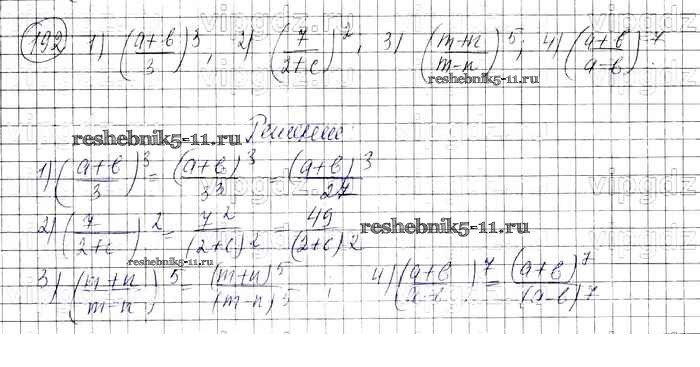 192 1) ((a+b)/3)^3, 2) (7/(2+c))^2, 3) ((m+n)/(m-n))^5; 4) ((a+b)/(a-b))^7.
reshebnik5-11.ru
reshebnik5-11.ru Решение:
1) ((a+b)/3)^3 = (a+b)^3/3^3 = (a+b)^3/27
2) (7/(2+c))^2 = 7^2/(2+c)^2 = 49/(2+c)^2
reshebnik5-11.ru
reshebnik5-11.ru
3) ((m+n)/(m-n))^5 = (m+n)^5/(m-n)^5; 4) ((a+b)/(a-b))^7 = (a+b)^7/(a-b)^7
vipgdz